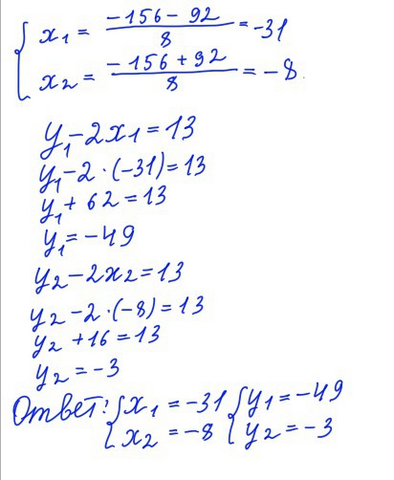 { x₁ = (-156 - 92)/8 = -31
x₂ = (-156 + 92)/8 = -8.
y₁ - 2x₁ = 13
y₁ - 2 · (-31) = 13
y₁ + 62 = 13
y₁ = -49
y₂ - 2x₂ = 13
y₂ - 2 · (-8) = 13
y₂ + 16 = 13
y₂ = -3
Ответ: { x₁ = -31 { y₁ = -49
x₂ = -8 y₂ = -3